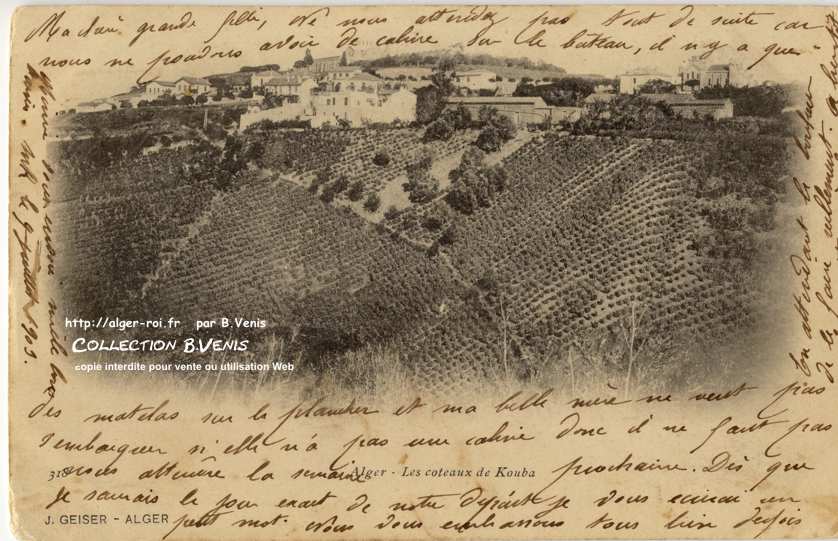 Ma chère grande Gété, Ne nous attendez pas tout de suite car
nous ne pouvons avoir de cabine sur le bateau, il n'y a que
des matelas sur le plancher et ma belle mère ne veut pas
s'embarquer si elle n'a pas une cabine donc il ne faut pas
nous attendre la semaine prochaine. Dès que
je saurais le jour exact de notre départ je vous écrirai un
petit mot. Nous vous embrassons tous bien
En attendant le bonheur
de
juillet 1903
318 Alger - Les coteaux de Kouba
J. GEISER - ALGER
http://alger-roi.fr par B.Venis
COLLECTION B.VENIS
copie interdite pour vente ou utilisation Web